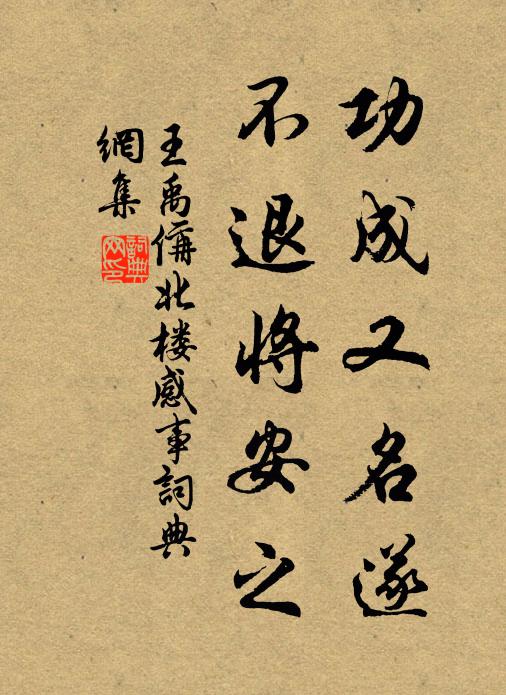 功成又名遂
不退将安之
王禹偁北楼感事詞典
網集
詞典网印